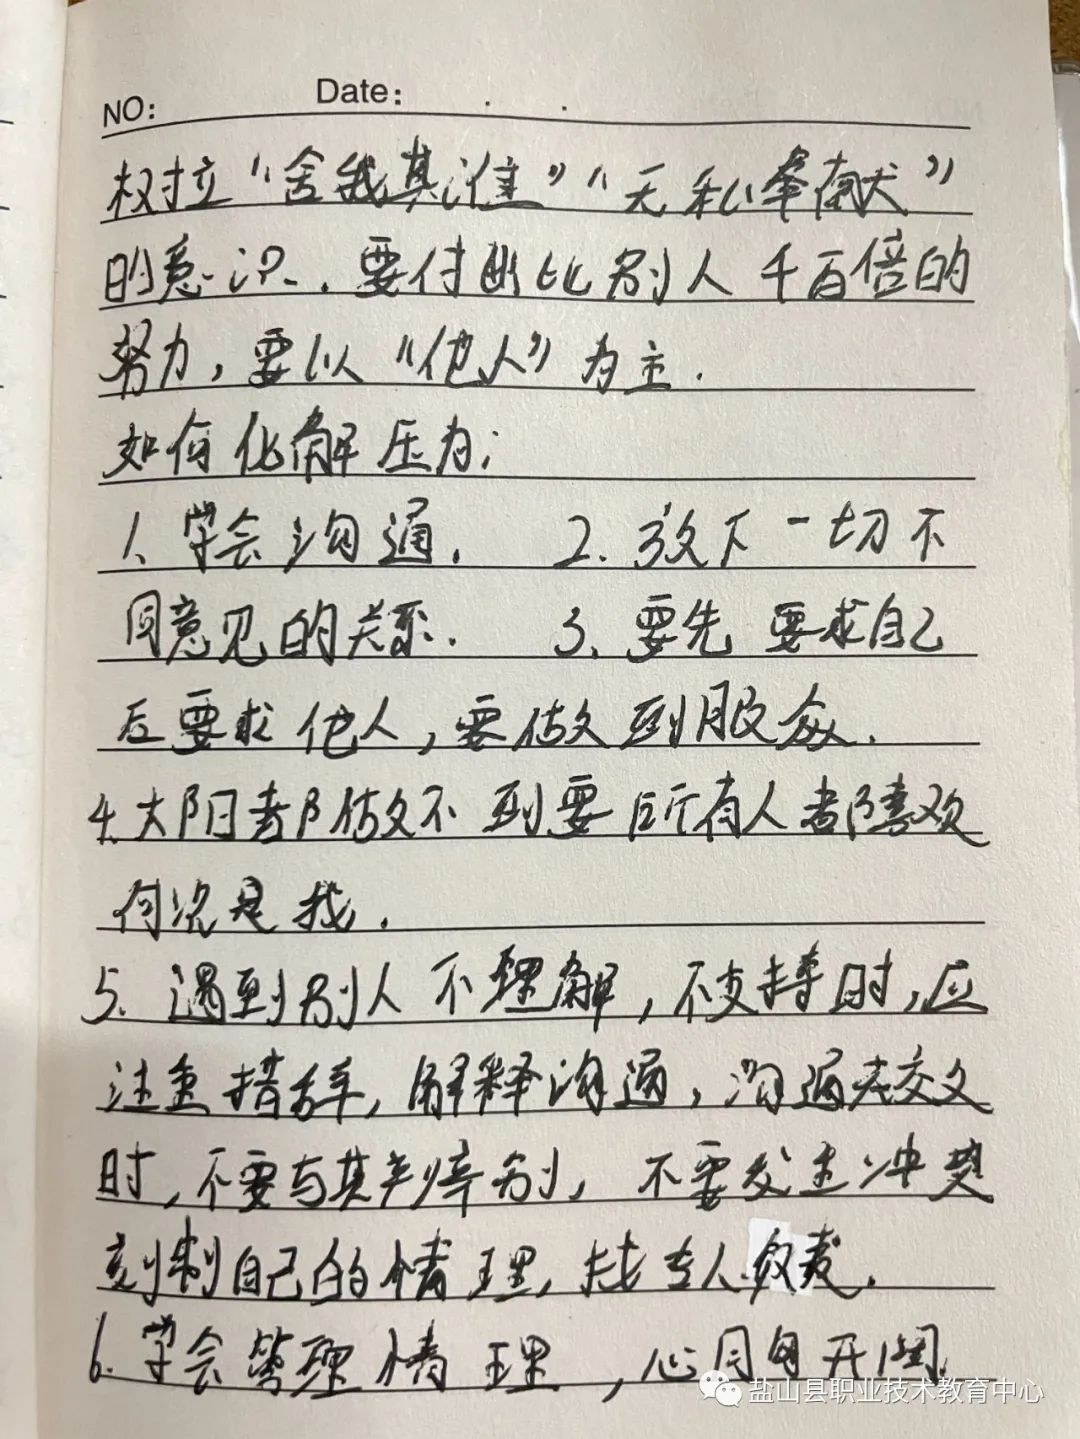 NO: Date:
树立“舍我其谁”“无私奉献”
的意识.要付出比别人千百倍的
努力,要以“他人”为主.
如何化解压力:
1、学会沟通. 2.放下一切不
同意见的关系. 3、要先要求自己
后要求他人,要做到服众.
4.太阳都做不到要所有人都喜欢
何况是我.
5.遇到别人不理解,不支持时,应
注重措辞,解释沟通,沟通
时,不要与其争辩,不要发生冲突
制自己的情理,找专人.
6.学会管理情理,心开阔.
盐山县职业技术教育中心